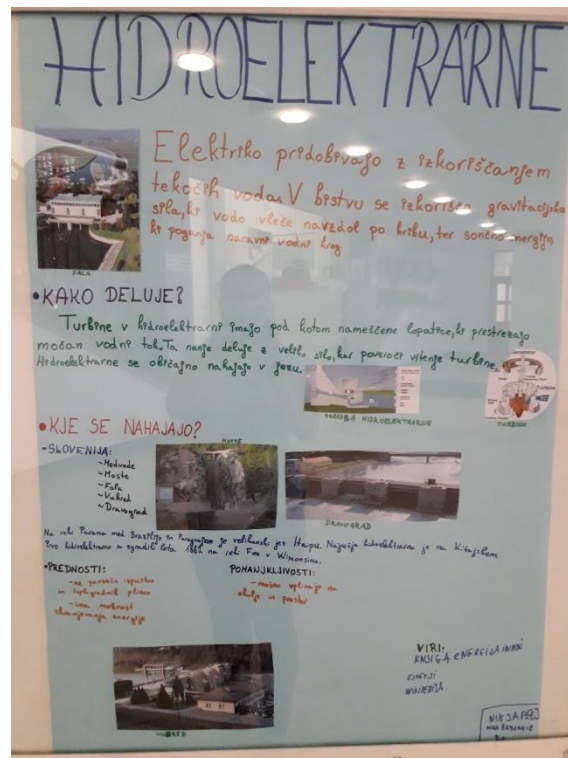 HIDROELEKTRARNE
Elektriko pridobivajo z izkoriščanjem
tekočih voda. V bistvu se izkorišča gravitacijska
sila, ki vodo vleče navzdol po hribu, ter sončno energijo
ki poganja naravni vodni krog
FALA
•KAKO DELUJE?
Turbine v hidroelektrarni imajo pod kotom nameščene lopatice, ki prestrezajo
močan vodni tok. Ta nanje deluje z veliko silo, kar povzroči vrtenje turbine.
Hidroelektrarne se običajno nahajajo v jezu.
ZGRADBA HIDROELEKTRARNE
TURBINA
•KJE SE NAHAJAJO?
MOSTE
•SLOVENIJA:
~Medvode
~Moste
~Fala
~Vuhred
~Dravograd
DRAVOGRAD
Na reki Parana med Brazilijo in Paragvajem je velikanski jez Itaipu. Največja hidroelektrarna je na Kitajskem
Prvo hidroelektrarno so zgradili leta 1882 na reki Fox v Wisconsinu.
•PREDNOSTI:
~ne povzroča izpustov
in toplogrednih plinov
~ima možnost
shranjevanja energije
POMANJKLJIVOSTI:
~močno vplivajo na
okolje in prostor
VUHRED
VIRI:
KNJIGA ENERGIJA
WIKIPEDIJA